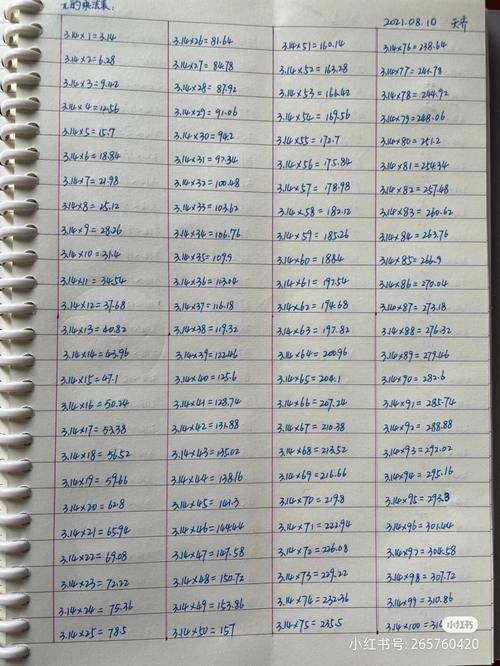 π的乘法表:
2021.08.10
3.14×1=3.14 3.14×26=81.64 3.14×51=160.14 3.14×76=238.64
3.14×2=6.28 3.14×27=84.78 3.14×52=163.28 3.14×77=241.78
3.14×3=9.42 3.14×28=87.92 3.14×53=166.42 3.14×78=244.92
3.14×4=12.56 3.14×29=91.06 3.14×54=169.56 3.14×79=248.06
3.14×5=15.7 3.14×30=94.2 3.14×55=172.7 3.14×80=251.2
3.14×6=18.84 3.14×31=97.34 3.14×56=175.84 3.14×81=254.34
3.14×7=21.98 3.14×32=100.48 3.14×57=178.98 3.14×82=257.48
3.14×8=25.12 3.14×33=103.62 3.14×58=182.12 3.14×83=260.62
3.14×9=28.26 3.14×34=106.76 3.14×59=185.26 3.14×84=263.76
3.14×10=31.4 3.14×35=109.9 3.14×60=188.4 3.14×85=266.9
3.14×11=34.54 3.14×36=113.04 3.14×61=191.54 3.14×86=270.04
3.14×12=37.68 3.14×37=116.18 3.14×62=194.68 3.14×87=273.18
3.14×13=40.82 3.14×38=119.32 3.14×63=197.82 3.14×88=276.32
3.14×14=43.96 3.14×39=122.46 3.14×64=200.96 3.14×89=279.46
3.14×15=47.1 3.14×40=125.6 3.14×65=204.1 3.14×90=282.6
3.14×16=50.24 3.14×41=128.74 3.14×66=207.24 3.14×91=285.74
3.14×17=53.38 3.14×42=131.88 3.14×67=210.38 3.14×92=288.88
3.14×18=56.52 3.14×43=135.02 3.14×68=213.52 3.14×93=292.02
3.14×19=59.66 3.14×44=138.16 3.14×69=216.66 3.14×94=295.16
3.14×20=62.8 3.14×45=141.3 3.14×70=219.8 3.14×95=298.3
3.14×21=65.94 3.14×46=144.44 3.14×71=222.94 3.14×96=301.44
3.14×22=69.08 3.14×47=147.58 3.14×72=226.08 3.14×97=304.58
3.14×23=72.22 3.14×48=150.72 3.14×73=229.22 3.14×98=307.72
3.14×24=75.36 3.14×49=153.86 3.14×74=232.36 3.14×99=310.86
3.14×25=78.5 3.14×50=157 3.14×75=235.5 3.14×100=31
小红书
小红书号: 265760420